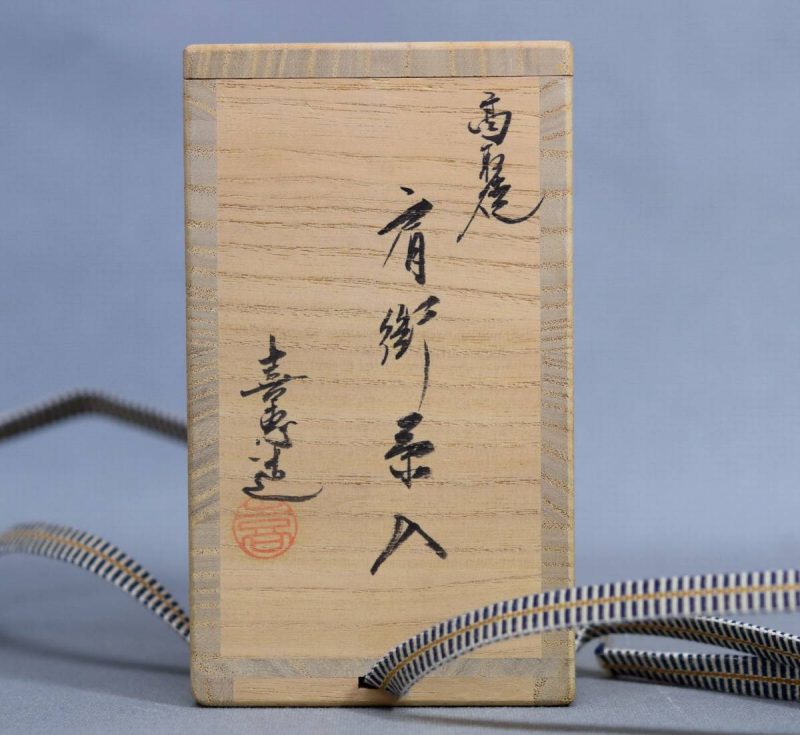 高取焼
肩衝茶入
喜恵造